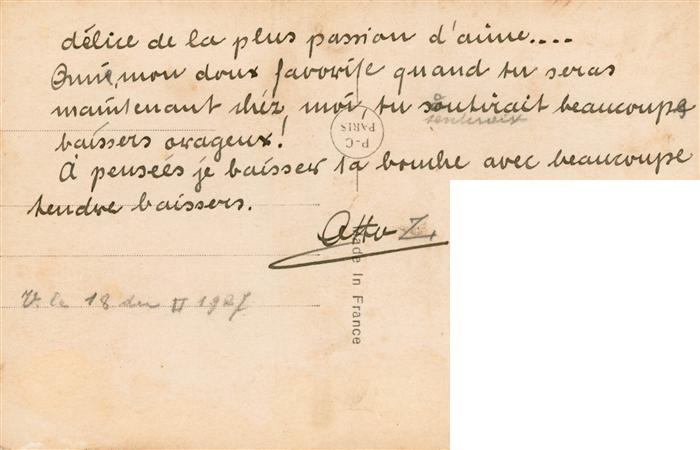 délice de la plus passion d'aime....
mon doux favorise quand tu seras
maintenant chéz moi, tu soutirait beaucoupe
sentirais
baissers orageux!
P-C
PARIS
À penseés je baisser ta bouche avec beaucoupe
tendre baissers.
Otto Z.
Made In France
V. le 18 du II 1927